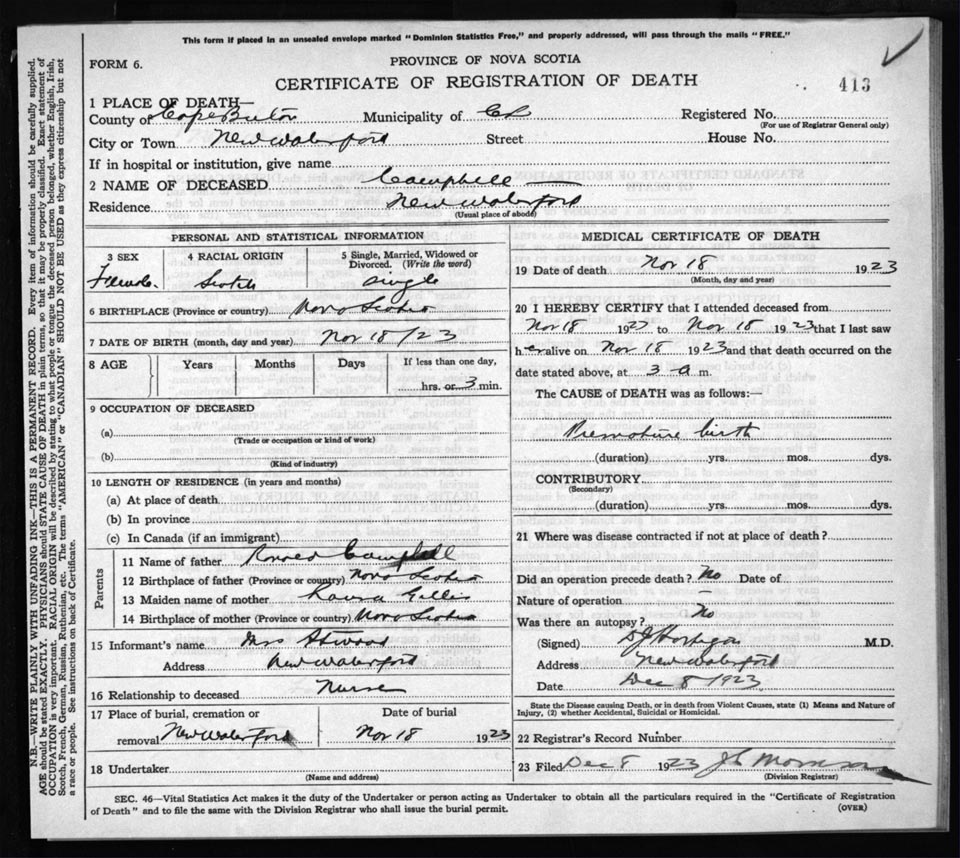 This form if placed in an unsealed envelope marked "Dominion Statistics Free," and properly addressed, will pass through the mails "FREE."
FORM 6.
PROVINCE OF NOVA SCOTIA
CERTIFICATE OF REGISTRATION OF DEATH
413
1 PLACE OF DEATH—
County of Cape Breton Municipality of CB Registered No.
(For use of Registrar General only)
City or Town New Waterford Street House No.
If in hospital or institution, give name
2 NAME OF DECEASED Campbell
Residence New Waterford
(Usual place of abode)
PERSONAL AND STATISTICAL INFORMATION
3 SEX 4 RACIAL ORIGIN 5 Single, Married, Widowed or Divorced. (Write the word)
Female Scotch Single
6 BIRTHPLACE (Province or country) Nova Scotia
7 DATE OF BIRTH (month, day and year) Nov 18/23
8 AGE Years Months Days If less than one day,
hrs. or 3 min.
9 OCCUPATION OF DECEASED
(a)
(Trade or occupation or kind of work)
(b)
(Kind of industry)
10 LENGTH OF RESIDENCE (in years and months)
(a) At place of death
(b) In province
(c) In Canada (if an immigrant)
Parents
11 Name of father Ronald Campbell
12 Birthplace of father (Province or country) Nova Scotia
13 Maiden name of mother Gillis
14 Birthplace of mother (Province or country) Nova Scotia
15 Informant's name Mrs Atwood
Address New Waterford
16 Relationship to deceased Nurse
17 Place of burial, cremation or removal New Waterford Date of burial Nov 18 1923
18 Undertaker
(Name and address)
MEDICAL CERTIFICATE OF DEATH
19 Date of death Nov 18 1923
(Month, day and year)
20 I HEREBY CERTIFY that I attended deceased from
Nov 18 1923 to Nov 18 1923 that I last saw
her alive on Nov 18 1923 and that death occurred on the
date stated above, at 3 a m.
The CAUSE of DEATH was as follows:—
Premature birth
(duration) yrs. mos. dys.
CONTRIBUTORY
(Secondary)
(duration) yrs. mos. dys.
21 Where was disease contracted if not at place of death?
Did an operation precede death? No Date of
Nature of operation –
Was there an autopsy? No
(Signed) M.D.
Address New Waterford
Date Dec 8/1923
State the Disease causing Death, or in death from Violent Causes, state (1) Means and Nature of Injury, (2) whether Accidental, Suicidal or Homicidal.
22 Registrar's Record Number
23 Filed Dec 8 1923
(Division Registrar)
SEC. 46—Vital Statistics Act makes it the duty of the Undertaker or person acting as Undertaker to obtain all the particulars required in the "Certificate of Registration
of Death" and to file the same with the Division Registrar who shall issue the burial permit.
(OVER)
N.B.—WRITE PLAINLY WITH UNFADING INK—THIS IS A PERMANENT RECORD. Every item of information should be carefully supplied.
AGE should be stated EXACTLY. PHYSICIANS should STATE CAUSE OF DEATH in plain terms, so that it may be properly classified. Exact statement of
OCCUPATION is very important. RACIAL ORIGIN will be described by stating to what people or tongue the deceased person belonged, whether English, Irish,
Scotch, French, German, Russian, Ruthenian, etc. The terms "AMERICAN" or "CANADIAN" SHOULD NOT BE USED as they express citizenship but not
a race or people. See instructions on back of Certificate.